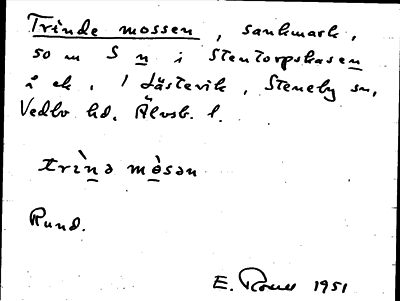 Trinde mossen, sankmark,
so m S n i Stentorpskasen
i ek. 1 Låstevik, Steneby sn,
Vedbo hd. Älvsb. l.
trìnə mòsən
Rund.
E. 1951